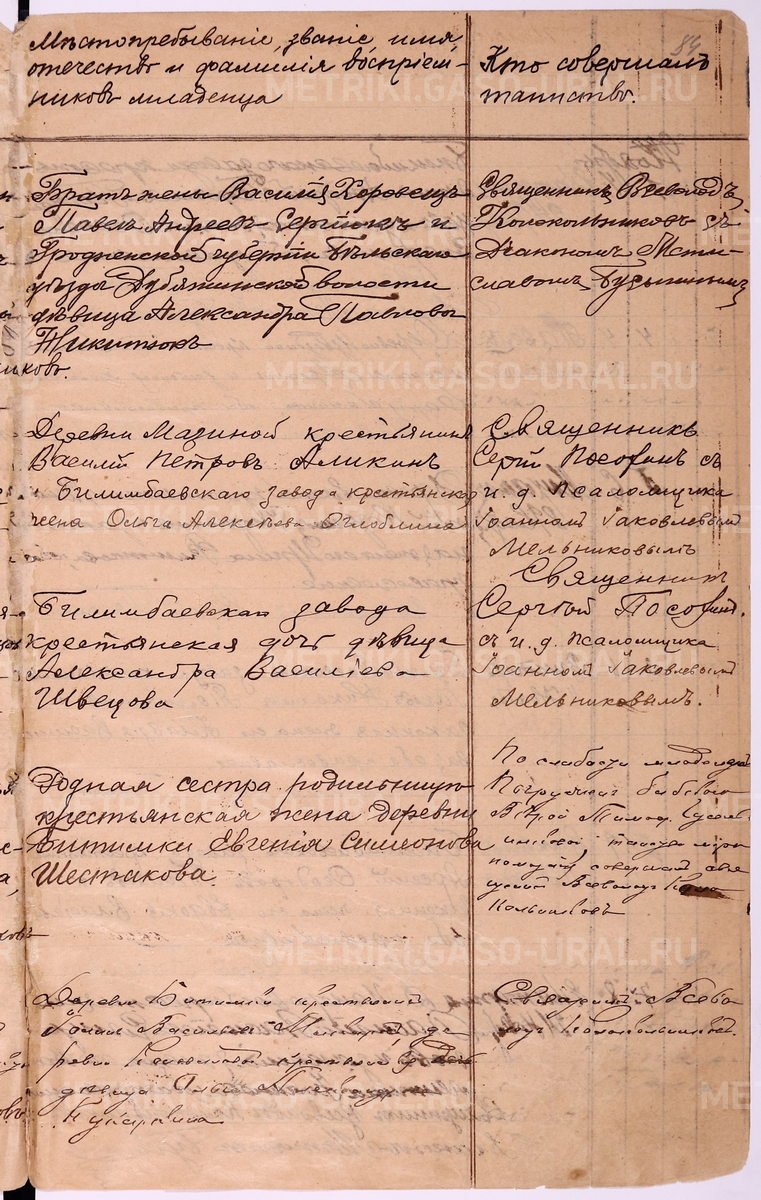 84
Мѣстопребываніе, званіе, имя,
отечество и фамилія воспріем-
никовъ младенца
Кто совершалъ
таинство.
METRIKI.GASO-URAL.RU
Братъ жены Василій Коровецъ
Павелъ Андреевъ Сергійюкъ и
Гродненской губерніи Бѣльскаго
уѣзда Дубяжинской волости
дѣвица Александра Павлова
Никитюкъ
Священникъ Всеволодъ
Колокольниковъ съ
Діакономъ Мсти-
славомъ
METRIKI.GASO-URAL.RU
Деревни Мазиной крестьянинъ
Василій Петровъ Аликинъ
и Билимбаевскаго завода крестьянская
жена Ольга Алексѣева Оглоблина
Священникъ
Сергій Посохинъ съ
и. д. Псаломщика
Іоанномъ Іаковлевымъ
Мельниковымъ
Билимбаевскаго завода
крестьянская дочь дѣвица
Александра Василіева
Швецова
Священникъ
Сергій Посохинъ.
съ и. д. псаломщика
Іоанномъ Іаковлевымъ
Мельниковымъ.
METRIKI.GASO-URAL.RU
Родная сестра родильницы
крестьянская жена деревни
Битимки Евгенія Симеонова
Шестакова.
По слабости младенца
погруженъ бабкою
совершалъ свя-
щенникъ Всеволодъ Коло
кольниковъ
METRIKI.GASO-URAL.RU
Деревни Битимки крестьянинъ
Василіевъ де
ревни крестьянская дочь
дѣвица
Священникъ Всево
лодъ Колокольниковъ.